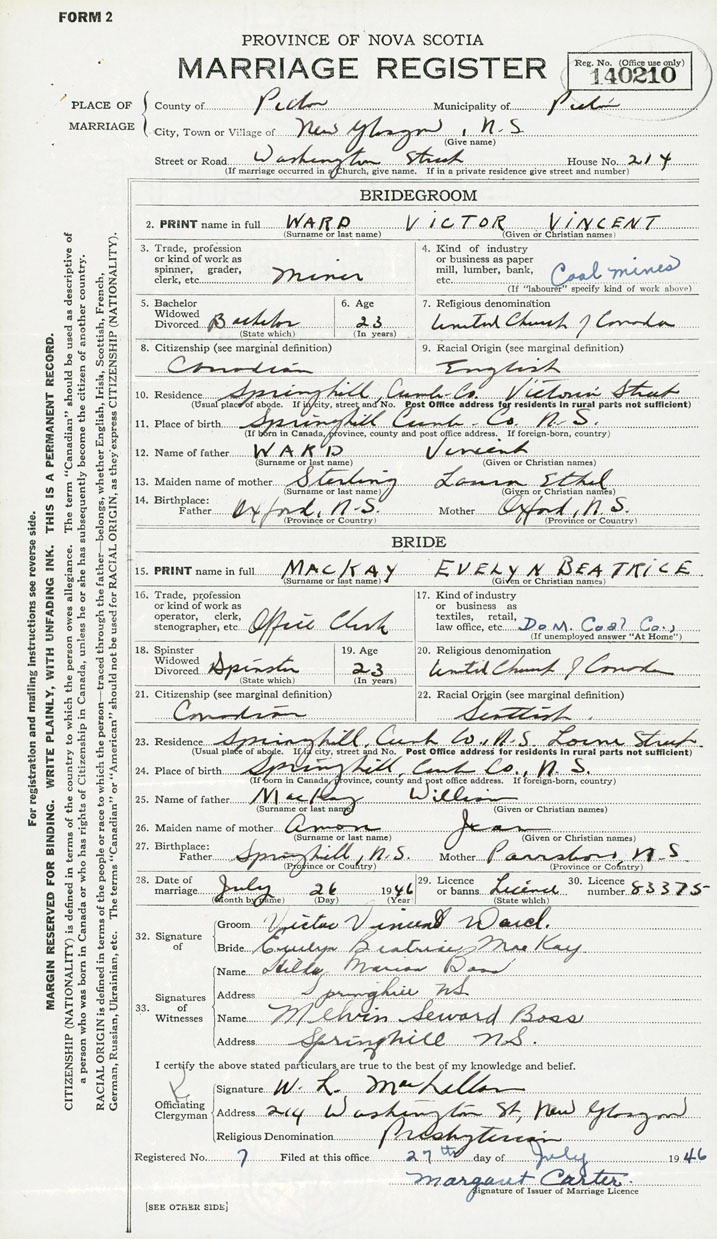 FORM 2
PROVINCE OF NOVA SCOTIA
MARRIAGE REGISTER
Reg. No. (Office use only)
140210
PLACE OF MARRIAGE
County of Pictou Municipality of Pictou
City, Town or Village of New Glasgow, N.S
(Give name)
Street or Road Washington Street House No. 214
(If marriage occurred in a church, give name. If in a private residence give street and number)
BRIDEGROOM
2. PRINT name in full WARD VICTOR VINCENT
(Surname or last name) (Given or Christian names)
3. Trade, profession or kind of work as spinner, grader, clerk, etc. Miner
4. Kind of industry or business as paper mill, lumber, bank, etc. Coal mines
(If "labourer" specify kind of work above)
5. Bachelor Widowed Divorced Bachelor
(State which)
6. Age 23
(In years)
7. Religious denomination United Church of Canada
8. Citizenship (see marginal definition) Canadian
9. Racial Origin (see marginal definition) English
10. Residence Springhill, Cumb. Co. Victoria Street
(Usual place of abode. If in city, street and No. Post Office address for residents in rural parts not sufficient)
11. Place of birth Springhill Cumb. Co. N.S.
(If born in Canada, province, county and post office address. If foreign-born, country)
12. Name of father WARD Vincent
(Surname or last name) (Given or Christian names)
13. Maiden name of mother Sterling Laura Ethel
(Surname or last name) (Given or Christian names)
14. Birthplace: Father Oxford, N.S. Mother Oxford, N.S.
(Province or Country) (Province or Country)
BRIDE
15. PRINT name in full MACKAY EVELYN BEATRICE
(Surname or last name) (Given or Christian names)
16. Trade, profession or kind of work as operator, clerk, stenographer, etc. Office Clerk
17. Kind of industry or business as textiles, retail, law office, etc. Dom. Coal Co.,
(If unemployed answer "At Home")
18. Spinster Widowed Divorced Spinster
(State which)
19. Age 23
(In years)
20. Religious denomination United Church of Canada
21. Citizenship (see marginal definition) Canadian
22. Racial Origin (see marginal definition) Scottish.
23. Residence Springhill, Cumb Co., N.S. Lorne Street.
(Usual place of abode. If in city, street and No. Post Office address for residents in rural parts not sufficient)
24. Place of birth Springhill, Cumb Co., N.S.
(If born in Canada, province, county and post office address. If foreign-born, country)
25. Name of father MacKay William
(Surname or last name) (Given or Christian names)
26. Maiden name of mother Amon Jean
(Surname or last name) (Given or Christian names)
27. Birthplace: Father Springhill, N.S. Mother Parrsboro, N.S
(Province or Country) (Province or Country)
28. Date of marriage July 26 1946
(Month by name) (Day) (Year)
29. Licence or banns Licence
(State which)
30. Licence number 83375
32. Signature of
Groom Victor Vincent Ward.
Bride Evelyn Beatrice MacKay
33. Signatures of Witnesses
Name Hilda Marion Boss
Address Springhill NS
Name Melvin Seward Boss
Address Springhill N.S.
I certify the above stated particulars are true to the best of my knowledge and belief.
Officiating Clergyman
Signature W. L. MacLellan
Address 214 Washington St, New Glasgow
Religious Denomination Presbyterian
Registered No. 7 Filed at this office 27th day of July 1946
Margaret Carter.
Signature of Issuer of Marriage Licence
[SEE OTHER SIDE]
For registration and mailing instructions see reverse side.
MARGIN RESERVED FOR BINDING. WRITE PLAINLY, WITH UNFADING INK. THIS IS A PERMANENT RECORD.
CITIZENSHIP (NATIONALITY) is defined in terms of the country to which the person owes allegiance. The term "Canadian" should be used as descriptive of
a person who was born in Canada or who has rights of Citizenship in Canada, unless he or she has subsequently become the citizen of another country.
RACIAL ORIGIN is defined in terms of the people or race to which the person—traced through the father—belongs, whether English, Irish, Scottish, French,
German, Russian, Ukrainian, etc. The terms "Canadian" or "American" should not be used for RACIAL ORIGIN, as they express CITIZENSHIP (NATIONALITY).